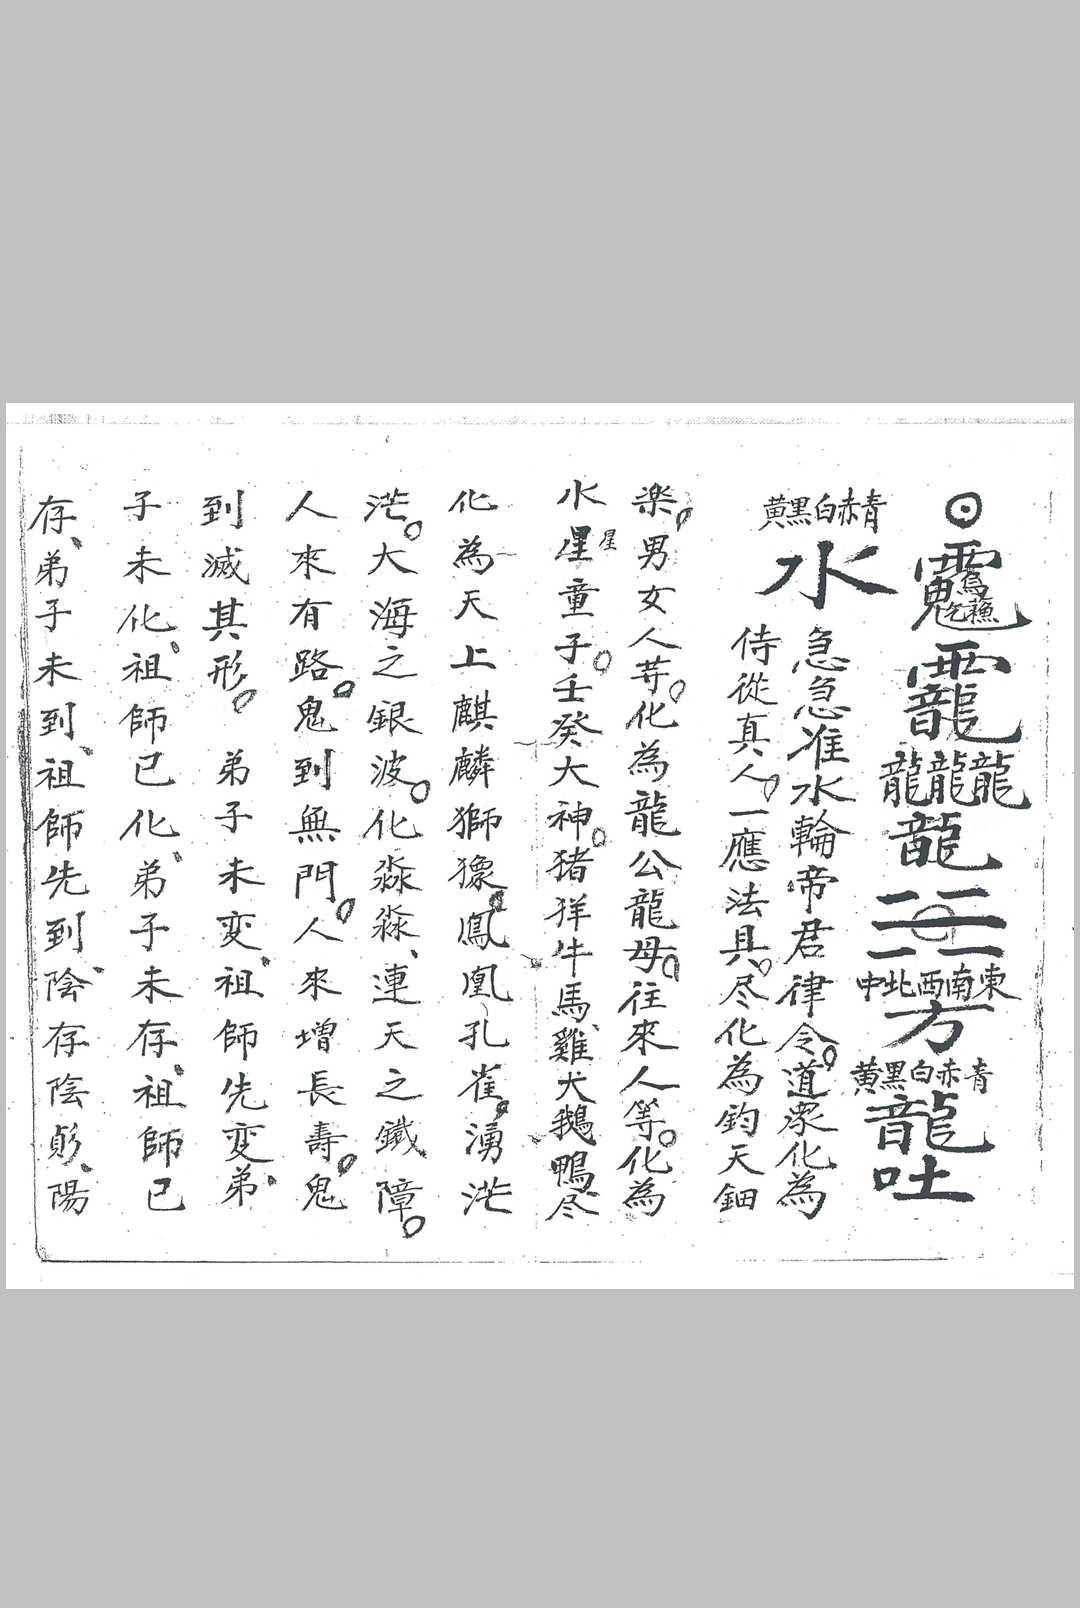 龍龍龍
龍
東南西北中
方
青赤白黑黄
龍
吐
青赤白黑黄
水
急急准水輪帝君律令。道衆化為
侍從真人。一應法具。尽化為鈞天鈿
楽。男女人等。化為龍公龍母。往來人等。化為
水星童子。壬癸大神。猪羊牛馬、雞犬鵝鴨、尽
星
化為天上麒麟獅㺄。鳳凰孔雀。湧茫
茫。大海之銀波。化淼淼、連天之鐵障。
人來有路。鬼到無門。人來增長壽。鬼
到滅其形。弟子未変、祖師先変、弟
子未化、祖師已化、弟子未存、祖師已
存、弟子未到、祖師先到、陰存陰、陽